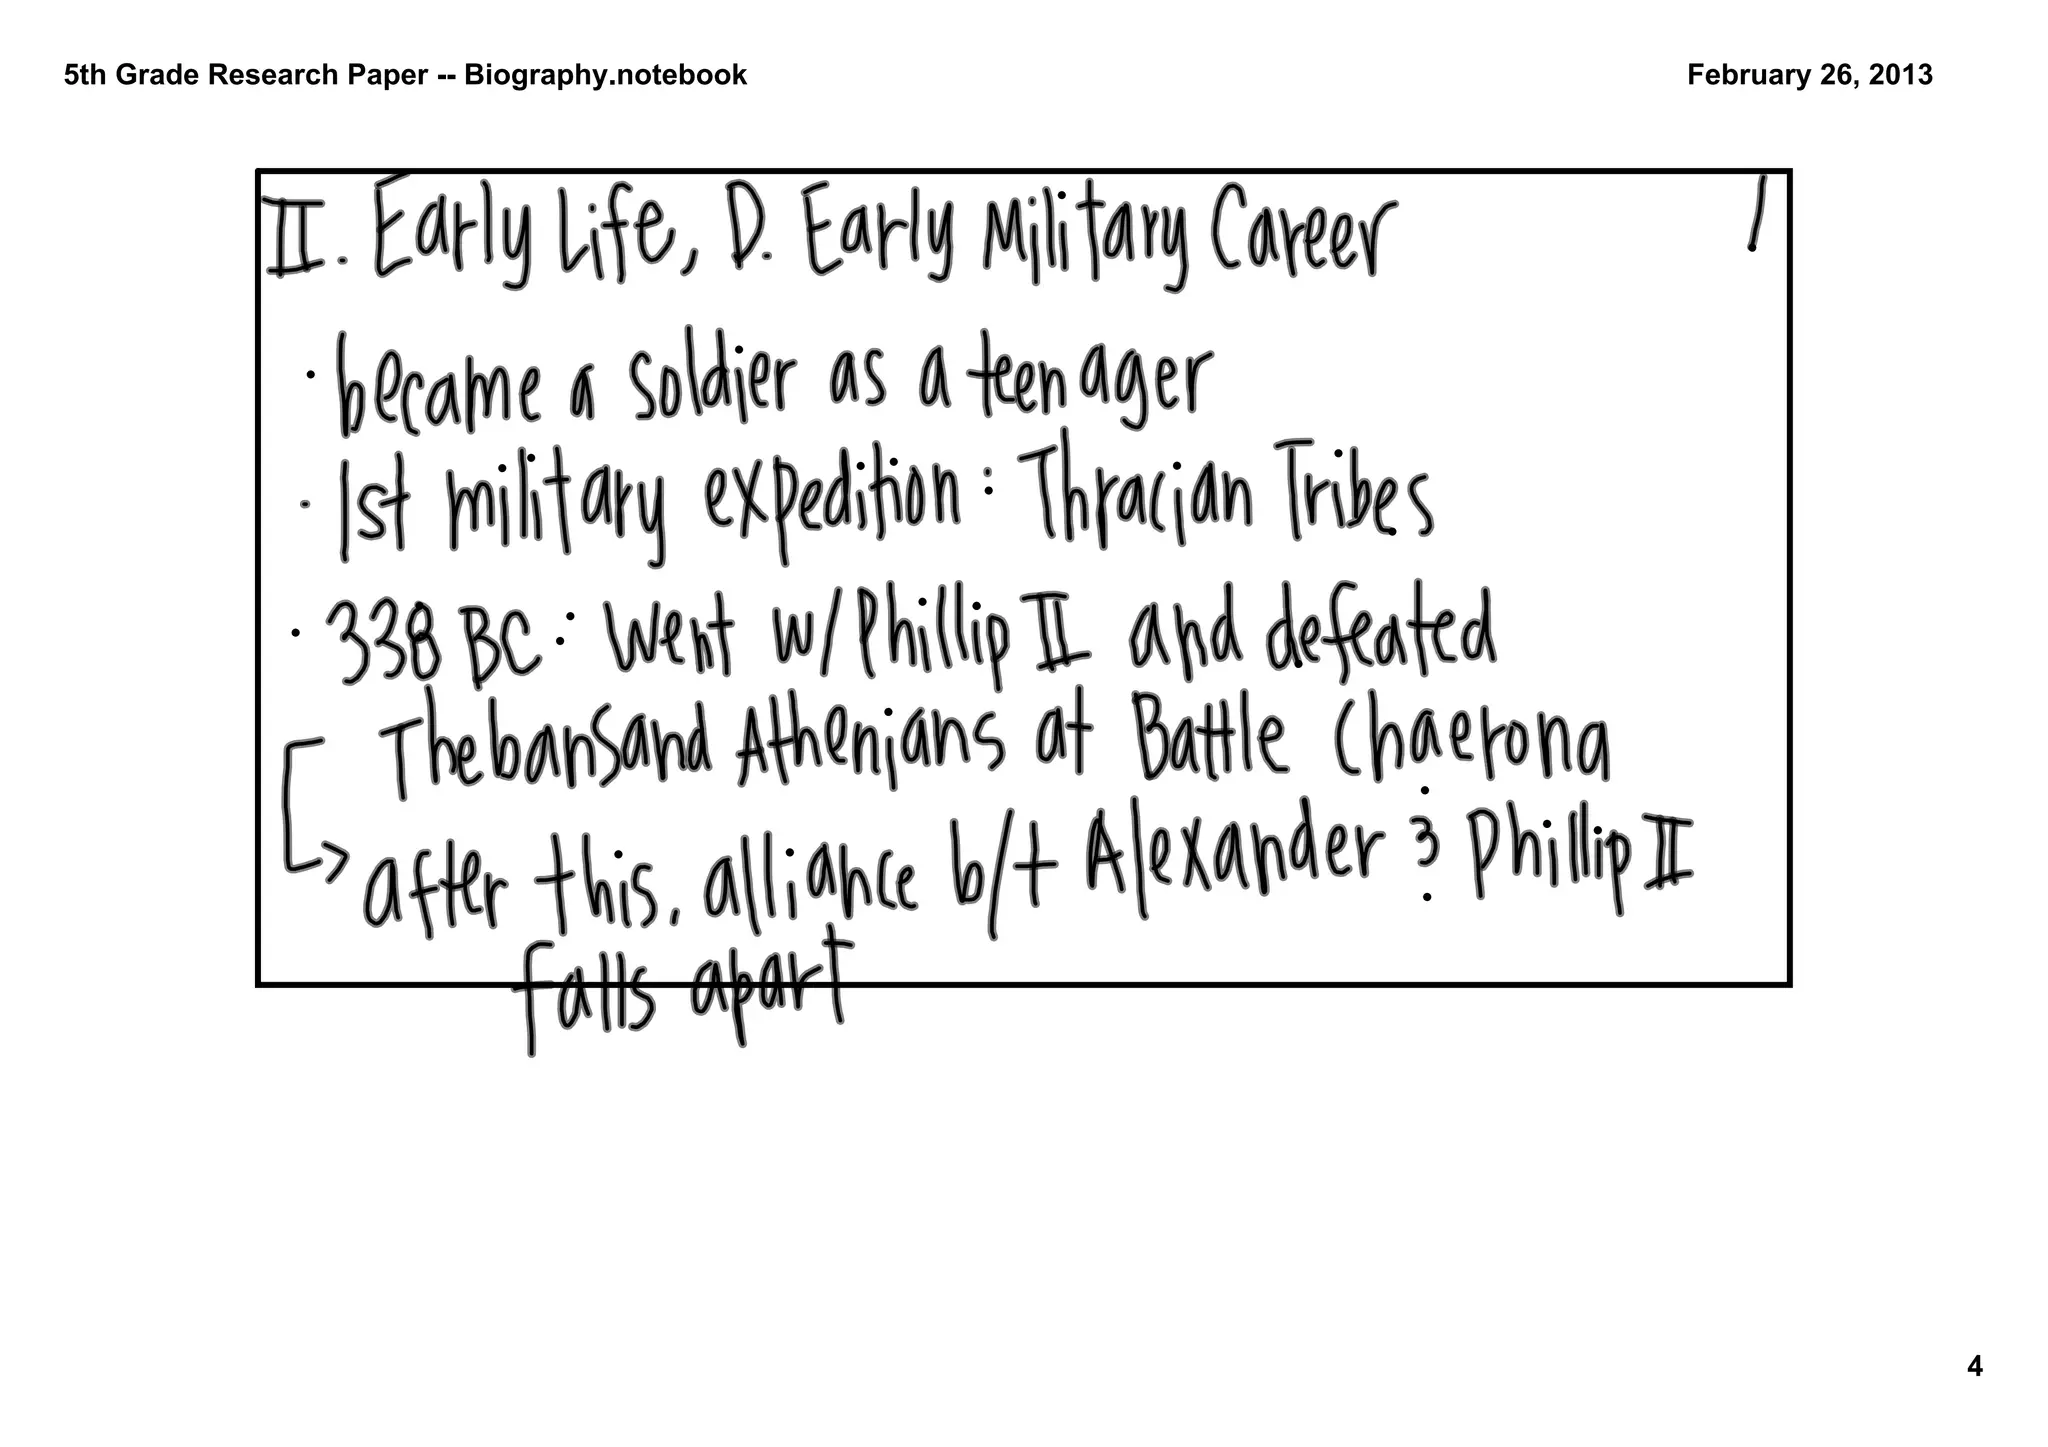 5th Grade Research Paper -- Biography.notebook
February 26, 2013
II. Early Life, D. Early Military Career 1
· became a soldier as a teenager
· 1st military expedition: Thracian Tribes
· 338 BC: Went w/ Phillip II and defeated
Thebans and Athenians at Battle Chaerona
→ after this, alliance b/t Alexander & Phillip II
falls apart
4